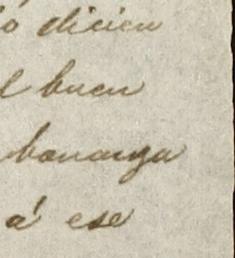 o dicien
l buen
bonanza
á ese